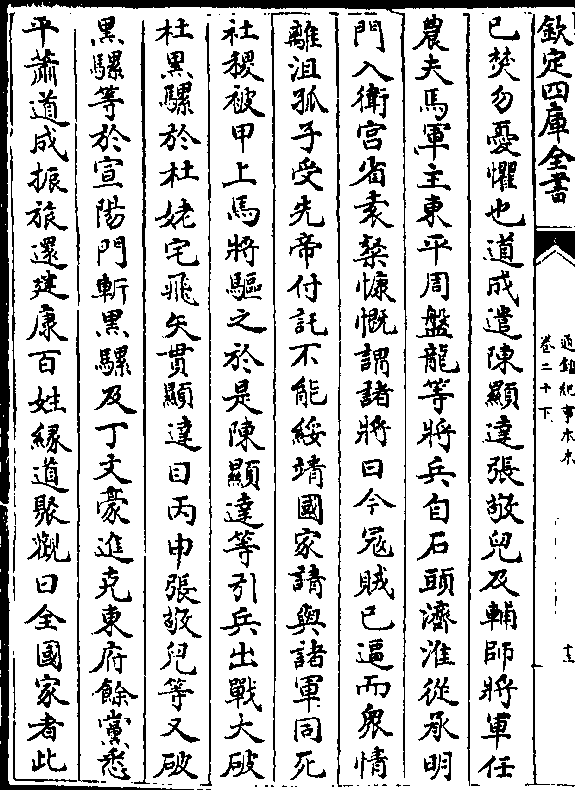 欽定四庫全書
通鑑紀事本末
卷二十下
十三
已焚勿憂懼也道成遣陳顯達張敬兒及輔師將軍任
農夫馬軍主東平周盤龍等將兵自石頭濟淮從承明
門入衛宮省袁粲慷慨謂諸將曰今寇賊已逼而衆情
離沮孤子受先帝付託不能綏靖國家請與諸軍同死
社稷被甲上馬將驅之於是陳顯達等引兵出戰大破
杜黑騾於杜姥宅飛矢貫顯達目丙申張敬兒等又破
黑騾等於宣陽門斬黑騾及丁文豪進克東府餘黨悉
平蕭道成振旅還建康百姓緣道聚觀曰全國家者此